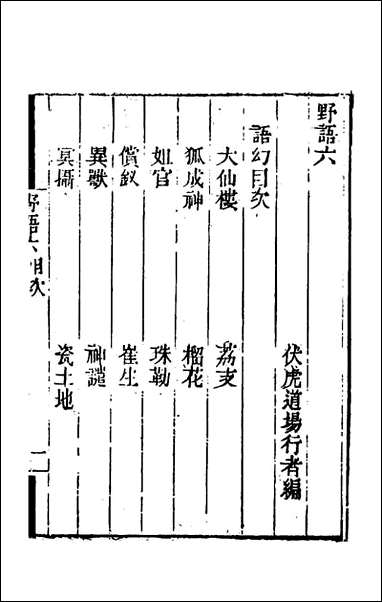 野語六
伏虎道場行者編
語幻目次
大仙樓 荔支
狐成神 榴花
姐官 珠勒
償釵 崔生
異獸 神譴
冥攝 瓷土地
野語六目次 二